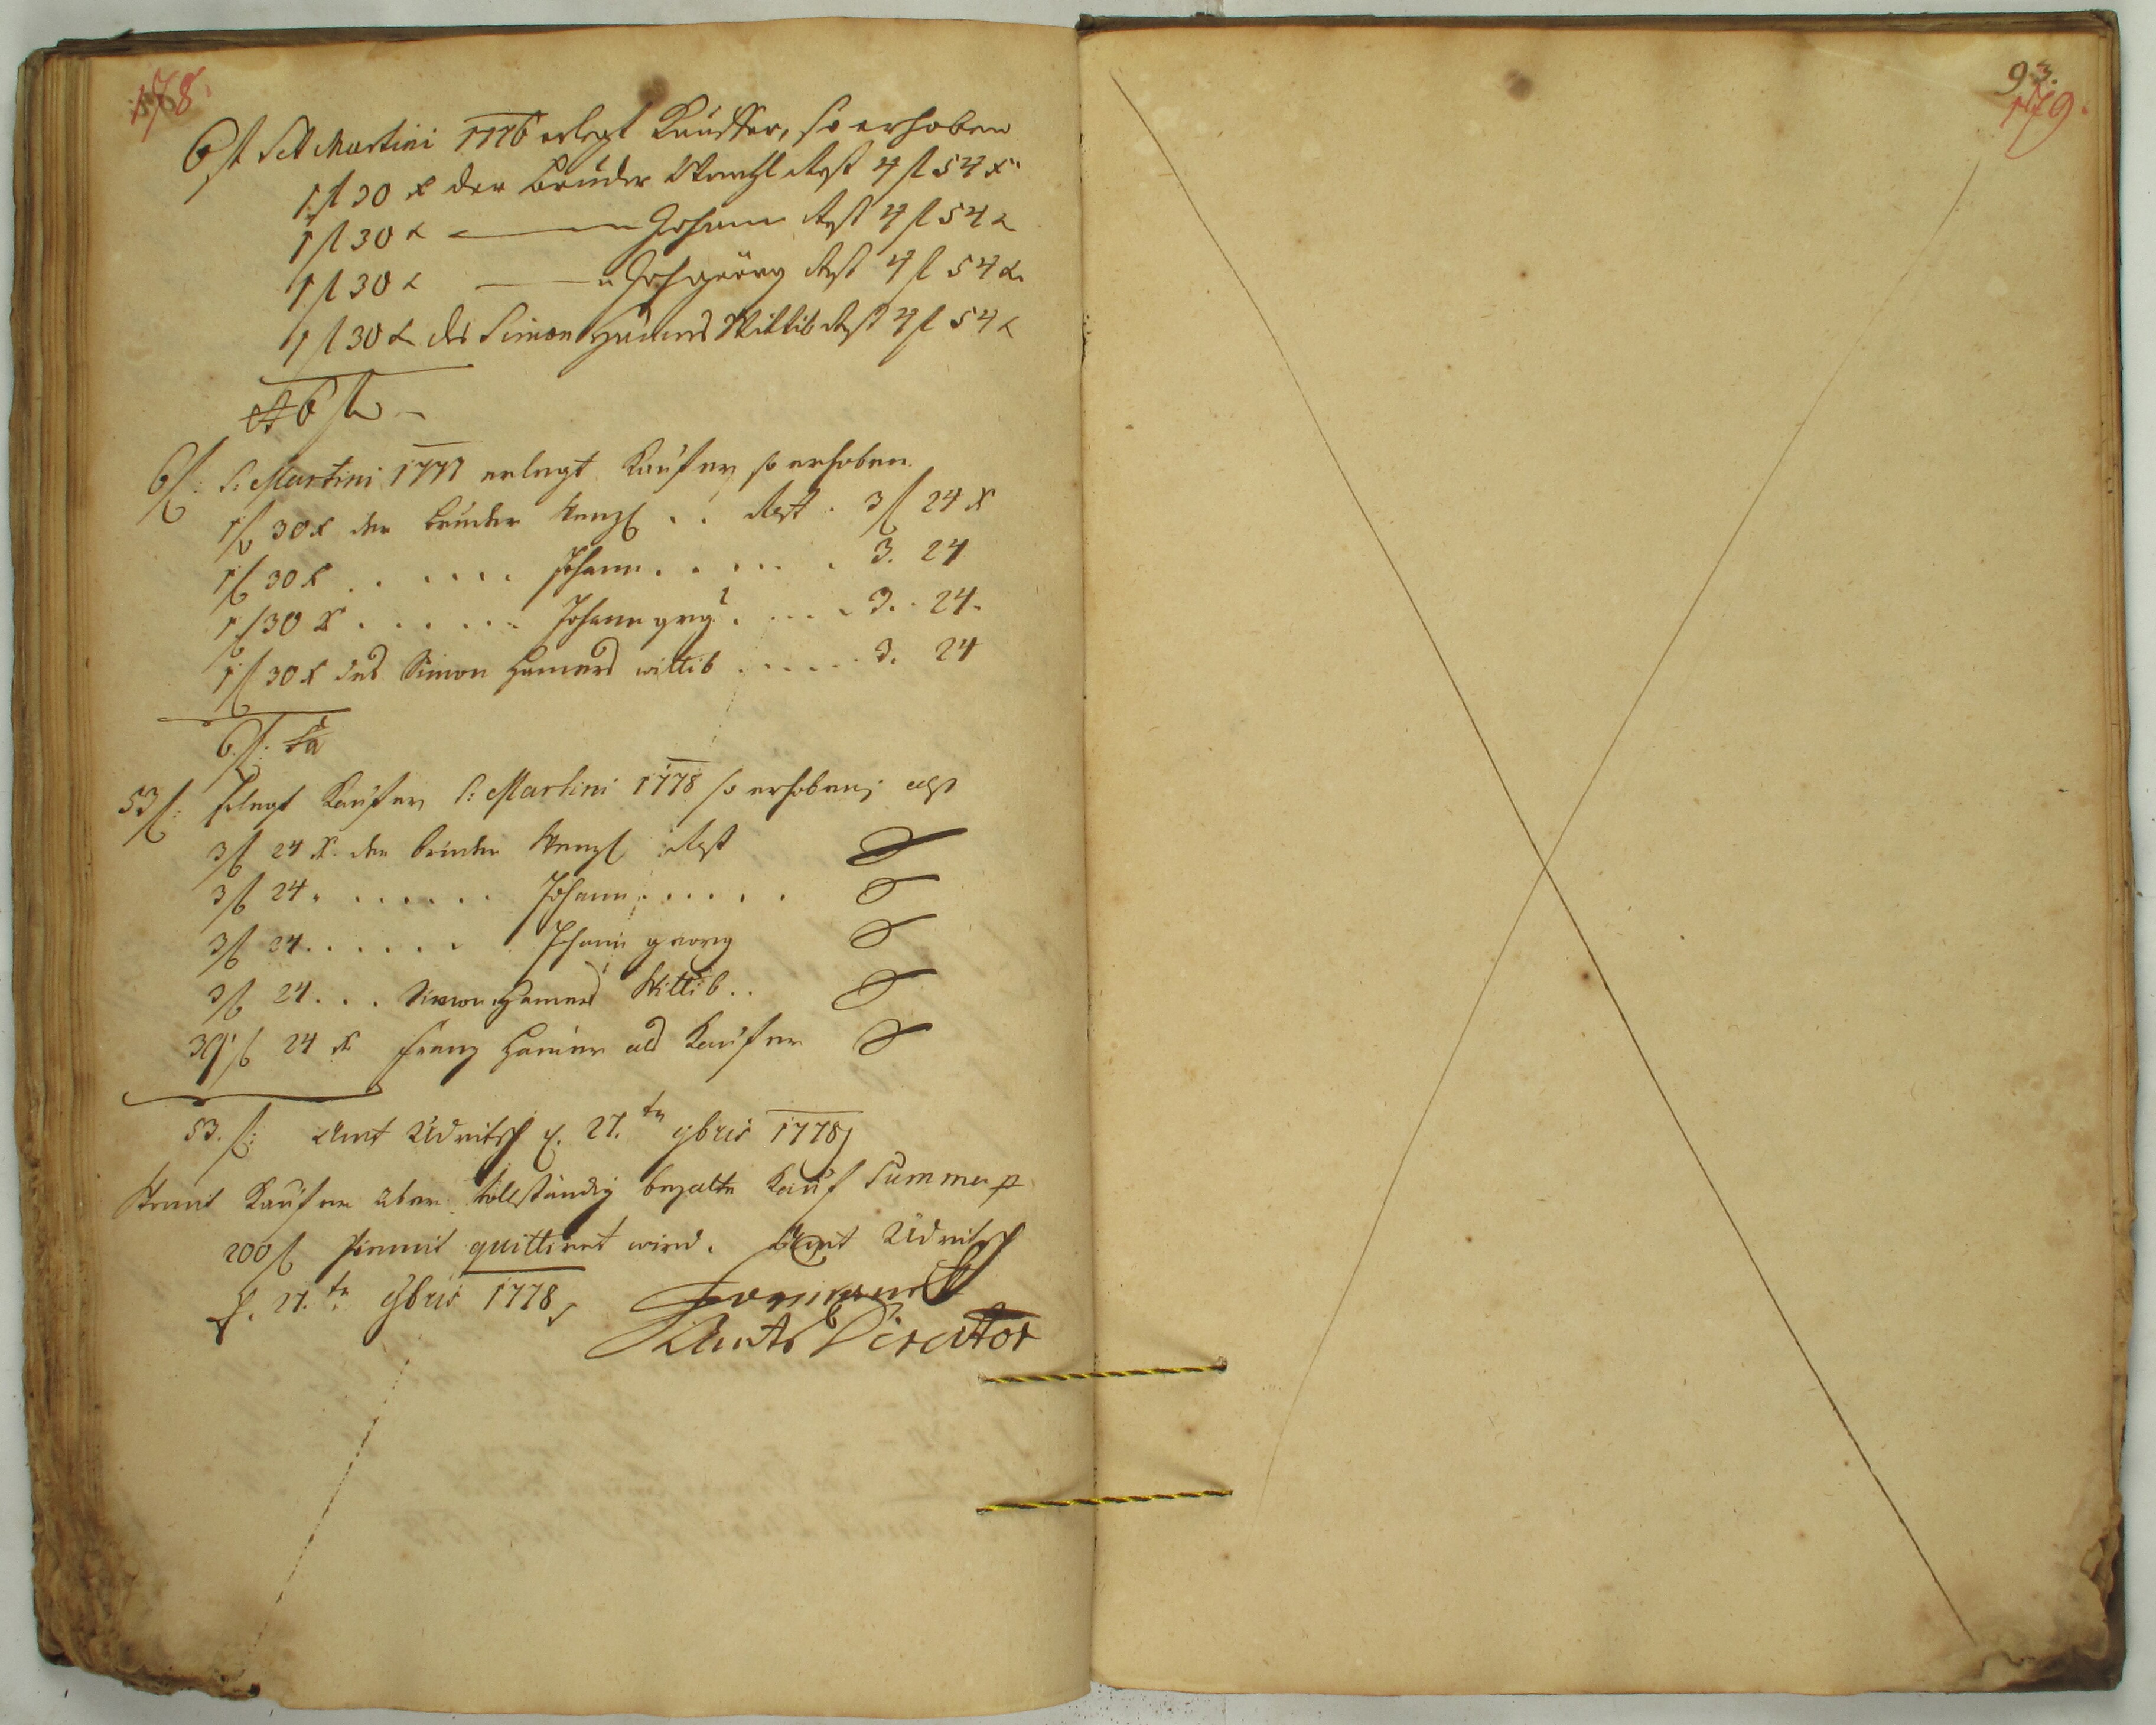 178.
6 fl St Martini 1776 erlegt Kauffer, so erhoben
1 fl 30 x der Bruder Wentzl Rest 4 fl 54 x
1 fl 30 x Johann Rest 4 fl 54 x
1 fl 30 x Joh Georg Rest 4 fl 54 x
1 fl 30 x des Simon Hamers Wittib Rest 4 fl 54 x
6 fl
6 fl: S: Martini 1777 erlegt Kaufer so erhoben
1 fl 30 x der Bruder Wenzl . . Rest . 3 fl 24 x
1 fl 30 x . . . . . . Johann . . . . . . 3. 24
1 fl 30 x . . . . . . Johann grg . . . . 3. 24.
1 fl 30 x des Simon Hamers wittib . . . . . . 3. 24
6 fl:
53 fl: Erlegt Kaufer S: Martini 1778 so erhoben; als
3 fl 24 x der bruder Wenzl Rest
3 fl 24 . . . . . . . Johann . . . . .
3 fl 24 . . . . . . Johann georg
3 fl 24 . . . Simon Hamers Wittib . .
39 fl 24 x Franz Hamer als Kaufer
53. fl: Amt Udritsch d. 27.tn 9bris 1778
Womit Kaufer über vollständig bezalte Kauf Summe p
200 fl hiemit quittiret wird. Amt Udritsch
d. 27.tn 9bris 1778
Director
93.
179.